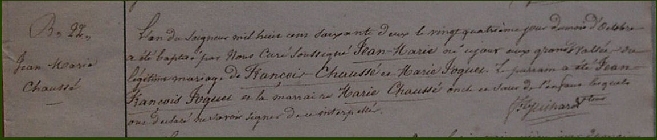 B. 22,
Jean-Marie
Chaussé
L'an du Seigneur mil huit cent soixante deux le vingt quatrième jour du mois d'Octobre
a été baptisé par Nous Curé soussigné Jean-Marie né ce jour aux grande Vallée du
légitime mariage de François Chaussé et Marie Foques. Le parrain a été Jean-
François Foques et la marraine Marie Chaussé oncle et Sœur de l'enfant lesquels
ont déclaré ne savoir signer de ce interpellé.